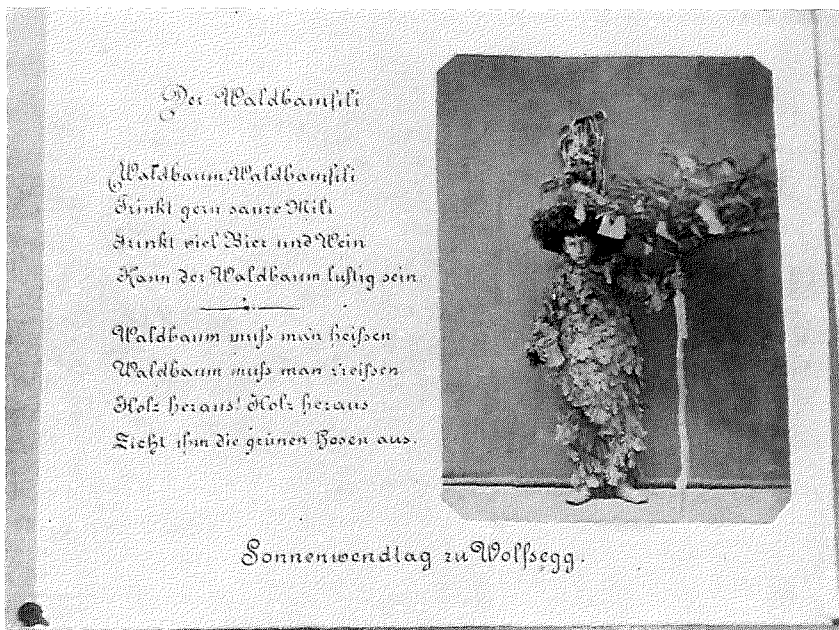 Der Waldbamhili
Waldbaum, Waldbamhili
Trinkt gern saure Mili
Trinkt viel Bier und Wein
Kann der Waldbaum luftig sein.
Waldbaum muſs man heiſsen
Waldbaum muſs man reiſsen
Holz heraus! Holz heraus
Zieht ihm die grünen Hosen aus.
Sonnenwendtag zu Wolfsegg.